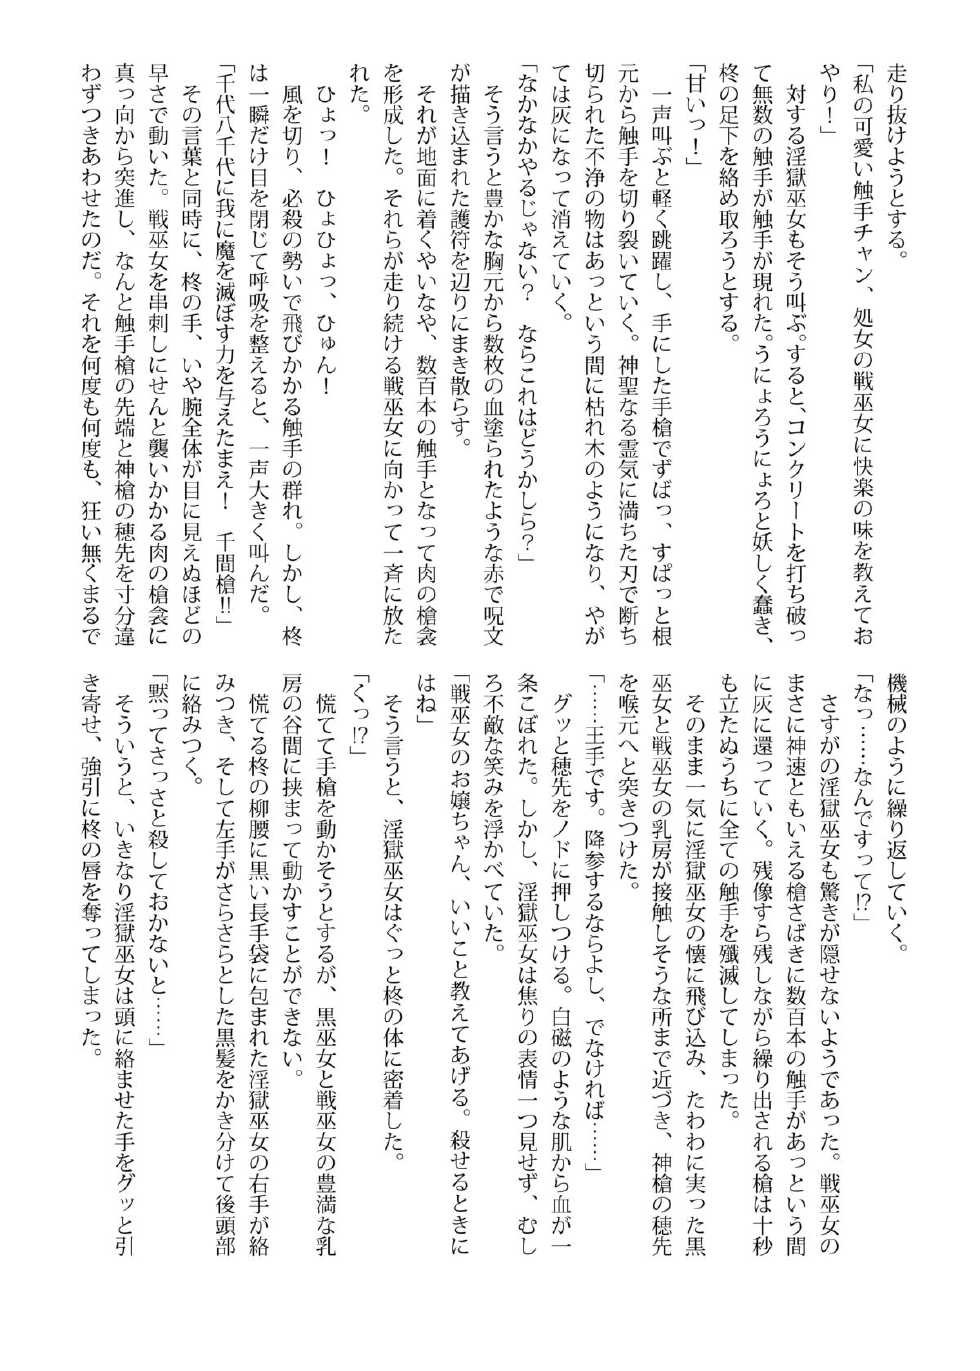 走り抜けようとする。
「私の可愛い触手チャン、処女の戦巫女に快楽の味を教えてお
やり！」
　対する淫獄巫女もそう叫ぶ。すると、コンクリートを打ち破っ
て無数の触手が触手が現れた。うにょろうにょろと妖しく蠢き、
柊の足下を絡め取ろうとする。
「甘いっ！」
　一声叫ぶと軽く跳躍し、手にした手槍でずばっ、すぱっと根
元から触手を切り裂いていく。神聖なる霊気に満ちた刃で断ち
切られた不浄の物はあっという間に枯れ木のようになり、やが
ては灰になって消えていく。
「なかなかやるじゃない？　ならこれはどうかしら？」
　そう言うと豊かな胸元から数枚の血塗られたような赤で呪文
が描き込まれた護符を辺りにまき散らす。
　それが地面に着くやいなや、数百本の触手となって肉の槍衾
を形成した。それらが走り続ける戦巫女に向かって一斉に放た
れた。
　ひょっ！　ひょひょっ、ひゅん！
　風を切り、必殺の勢いで飛びかかる触手の群れ。しかし、柊
は一瞬だけ目を閉じて呼吸を整えると、一声大きく叫んだ。
「千代八千代に我に魔を滅ぼす力を与えたまえ！　千間槍!!」
　その言葉と同時に、柊の手、いや腕全体が目に見えぬほどの
早さで動いた。戦巫女を串刺しにせんと襲いかかる肉の槍衾に
真っ向から突進し、なんと触手槍の先端と神槍の穂先を寸分違
わずつきあわせたのだ。それを何度も何度も、狂い無くまるで
機械のように繰り返していく。
「なっ……なんですって!?」
　さすがの淫獄巫女も驚きが隠せないようであった。戦巫女の
まさに神速ともいえる槍さばきに数百本の触手があっという間
に灰に還っていく。残像すら残しながら繰り出される槍は十秒
も立たぬうちに全ての触手を殲滅してしまった。
　そのまま一気に淫獄巫女の懐に飛び込み、たわわに実った黒
巫女と戦巫女の乳房が接触しそうな所まで近づき、神槍の穂先
を喉元へと突きつけた。
「……王手です。降参するならよし、でなければ……」
　グッと穂先をノドに押しつける。白磁のような肌から血が一
条こぼれた。しかし、淫獄巫女は焦りの表情一つ見せず、むし
ろ不敵な笑みを浮かべていた。
「戦巫女のお嬢ちゃん、いいこと教えてあげる。殺せるときに
はね」
　そう言うと、淫獄巫女はぐっと柊の体に密着した。
「くっ!?」
　慌てて手槍を動かそうとするが、黒巫女と戦巫女の豊満な乳
房の谷間に挟まって動かすことができない。
　慌てる柊の柳腰に黒い長手袋に包まれた淫獄巫女の右手が絡
みつき、そして左手がさらさらとした黒髪をかき分けて後頭部
に絡みつく。
「黙ってさっさと殺しておかないと……」
　そういうと、いきなり淫獄巫女は頭に絡ませた手をグッと引
き寄せ、強引に柊の唇を奪ってしまった。